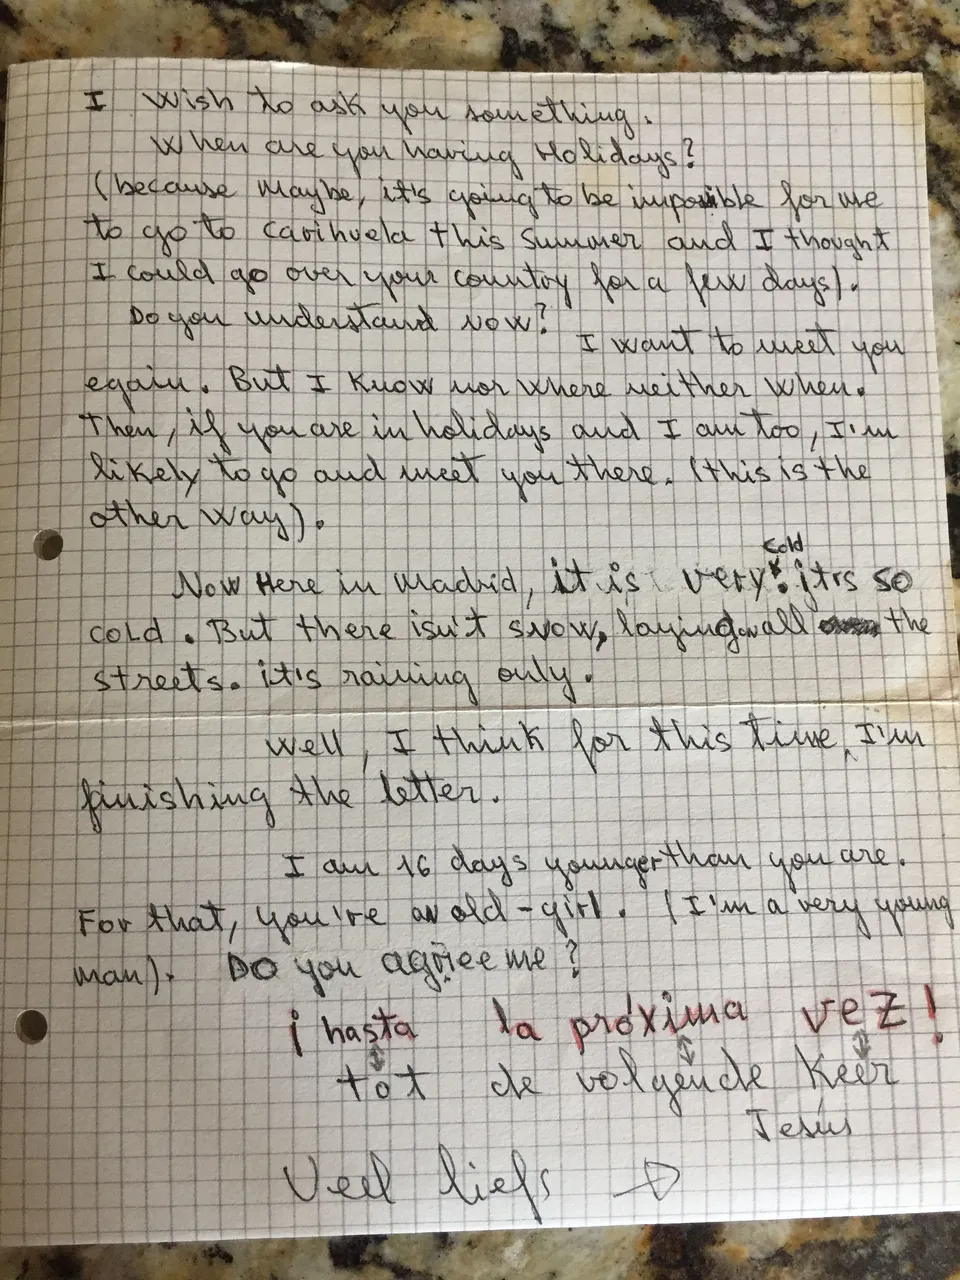 I wish to ask you something.
When are you having Holidays?
(because maybe, it's going to be impossible for me
to go to Carihuela this summer and I thought
I could go over your country for a few days).
Do you understand now?
I want to meet you
egain. But I know nor where neither when.
Then, if you are in holidays and I am too, I'm
likely to go and meet you there. (this is the
other way).
Now Here in Madrid, it is very cold. it's so
cold. But there isn't snow, laying on all the
streets. it's raining only.
Well, I think for this time, I'm
finishing the letter.
I am 16 days younger than you are.
For that, you're an old-girl. (I'm a very young
man). Do you agree me?
¡hasta la próxima vez!
tot de volgende keer
Jesús
Veel liefs →